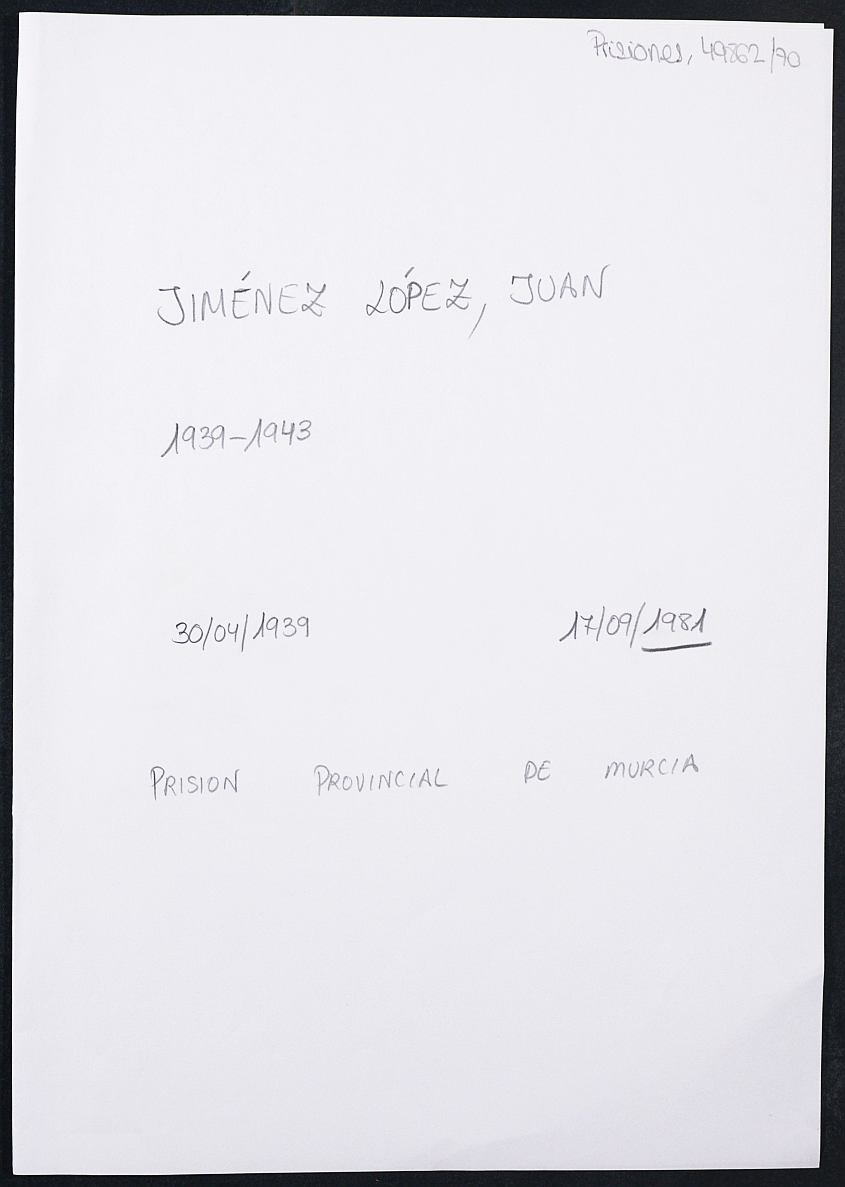 Prisiones, 49862/70
JIMÉNEZ LÓPEZ, JUAN
1939-1943
30/04/1939 17/09/1981
PRISION PROVINCIAL DE MURCIA